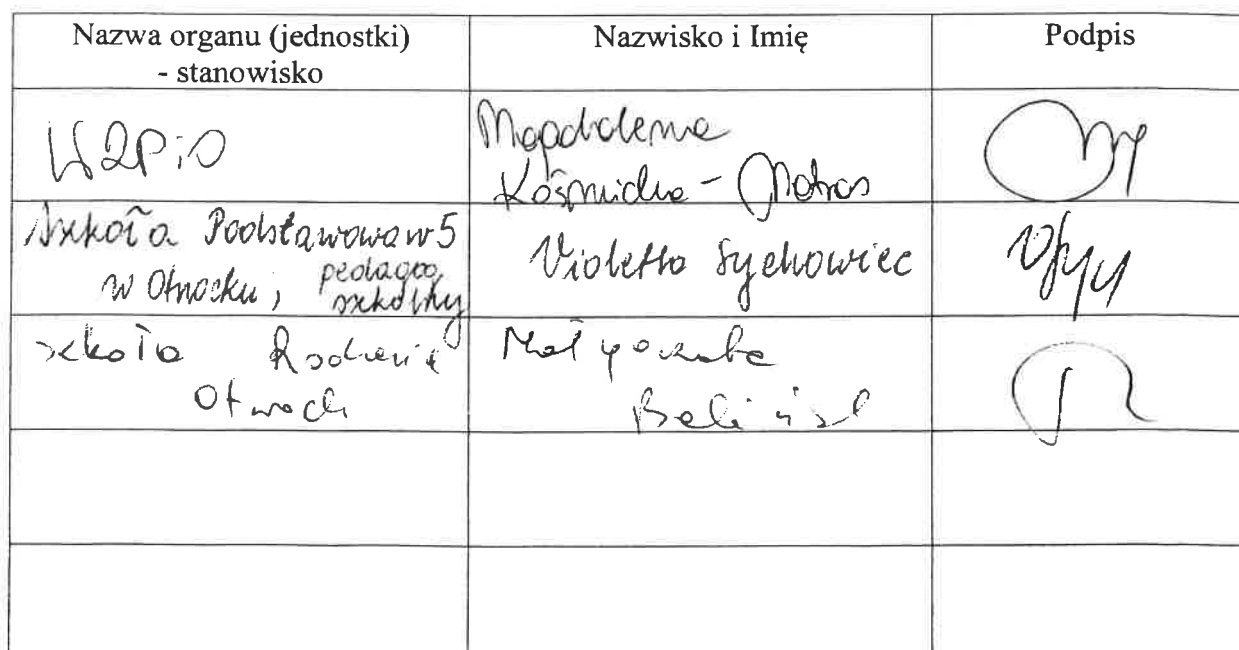 Nazwa organu (jednostki)
- stanowisko
Nazwisko i Imię
Podpis
Magdalena
Kośmicka - Matras
Szkoła Podstawowa nr 5
w Otwocku, pedagog
szkolny
Violetta Sychowiec
Szkoła Rodzenia
Otwock
Małgorzata